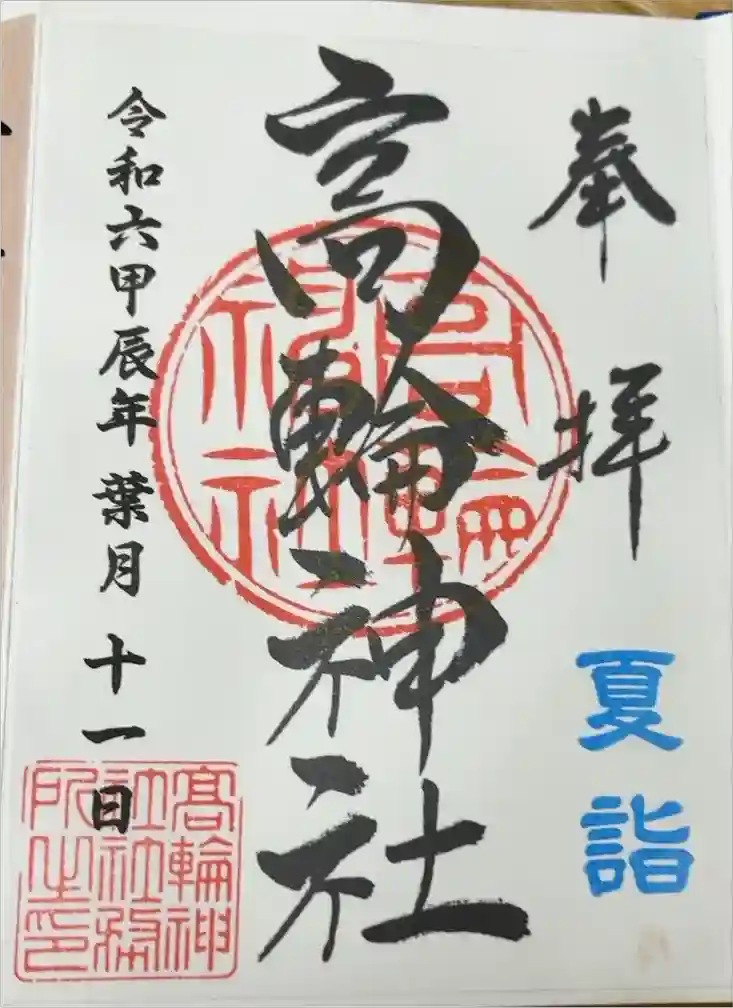 奉拝
夏詣
高輪神社
高輪神社
令和六甲辰年葉月十一日
髙輪神社社務所之印